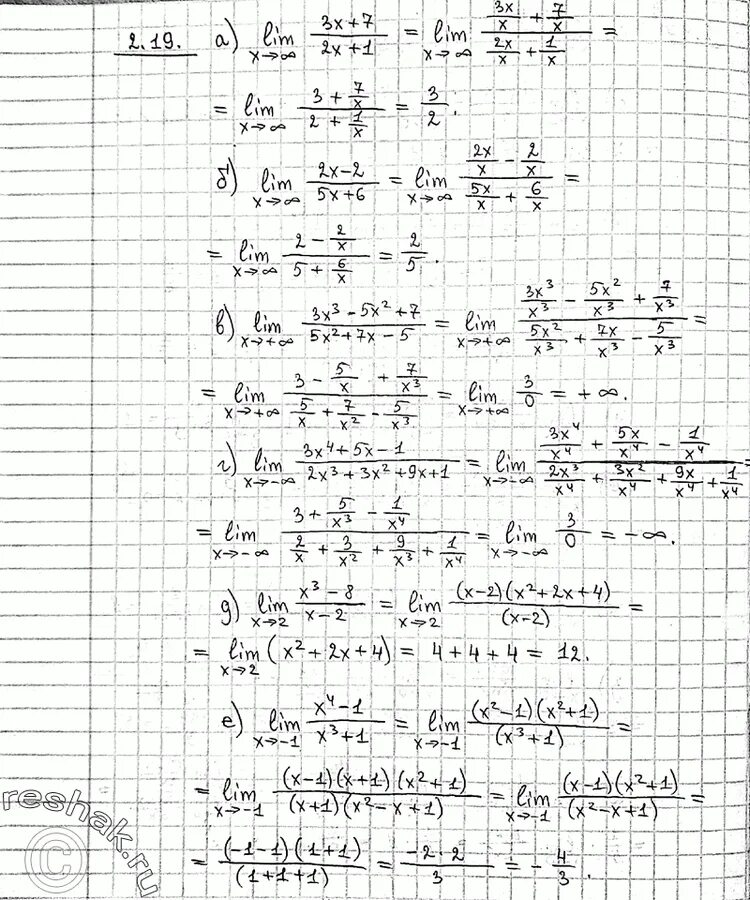 2.19. а) lim_{x→∞} (3x+7)/(2x+1) = lim_{x→∞} (3x/x + 7/x)/(2x/x + 1/x) =
= lim_{x→∞} (3 + 7/x)/(2 + 1/x) = 3/2.
б) lim_{x→∞} (2x-2)/(5x+6) = lim_{x→∞} (2x/x - 2/x)/(5x/x + 6/x) =
= lim_{x→∞} (2 - 2/x)/(5 + 6/x) = 2/5.
в) lim_{x→+∞} (3x³ - 5x² + 7)/(5x² + 7x - 5) = lim_{x→+∞} (3x³/x³ - 5x²/x³ + 7/x³)/(5x²/x³ + 7x/x³ - 5/x³) =
= lim_{x→+∞} (3 - 5/x + 7/x³)/(5/x + 7/x² - 5/x³) = lim_{x→+∞} 3/0 = +∞.
г) lim_{x→-∞} (3x⁴ + 5x - 1)/(2x³ + 3x² + 9x + 1) = lim_{x→-∞} (3x⁴/x⁴ + 5x/x⁴ - 1/x⁴)/(2x³/x⁴ + 3x²/x⁴ + 9x/x⁴ + 1/x⁴) =
= lim_{x→-∞} (3 + 5/x³ - 1/x⁴)/(2/x + 3/x² + 9/x³ + 1/x⁴) = lim_{x→-∞} 3/0 = -∞.
д) lim_{x→2} (x³ - 8)/(x - 2) = lim_{x→2} (x-2)(x² + 2x + 4)/(x-2) =
= lim_{x→2} (x² + 2x + 4) = 4 + 4 + 4 = 12.
е) lim_{x→-1} (x⁴ - 1)/(x³ + 1) = lim_{x→-1} (x² - 1)(x² + 1)/(x³ + 1) =
= lim_{x→-1} (x-1)(x+1)(x² + 1)/(x+1)(x² - x + 1) = lim_{x→-1} (x-1)(x² + 1)/(x² - x + 1) =
= (-1-1)(1+1)/(1+1+1) = -2·2/3 = -4/3.
reshak.ru
©